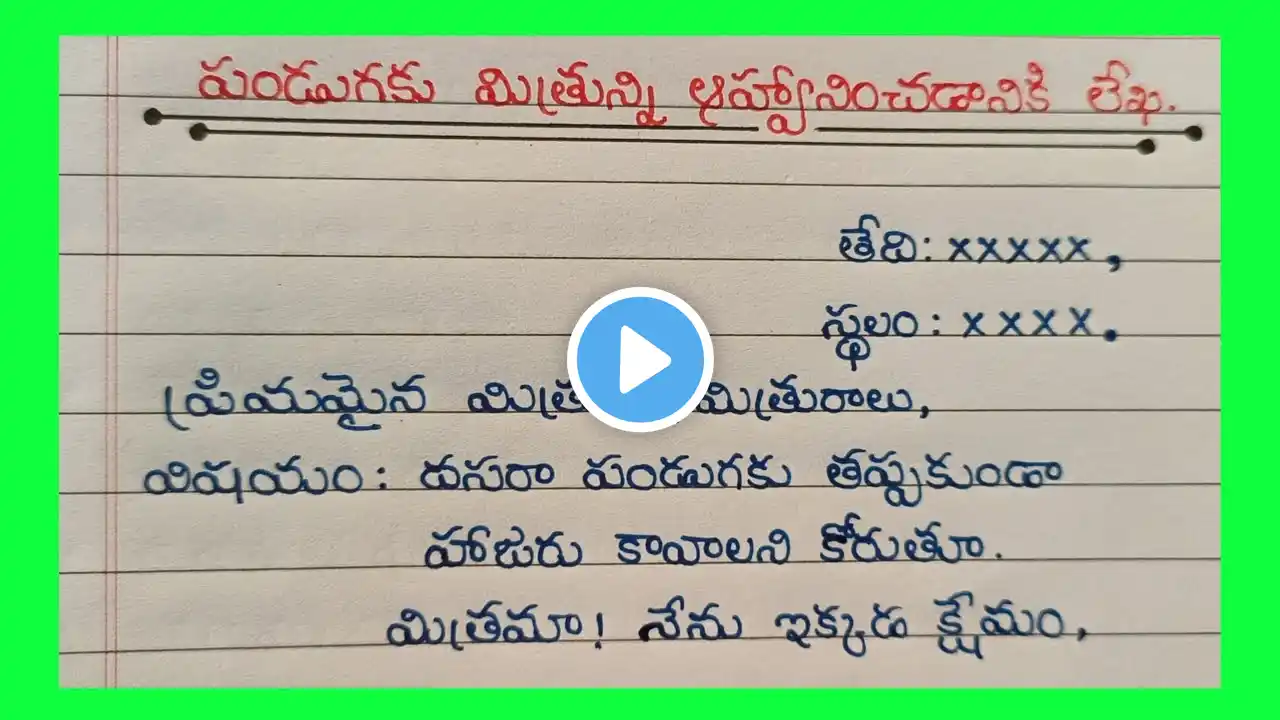 పండుగకు మిత్రున్ని ఆహ్వానించడానికి లేఖ.
తేది: xxxxx,
స్థలం: xxxx.
ప్రియమైన మిత్రురాలు,
విషయం: దుసరా పండుగకు తప్పకుండా
హాజరు కావాలని కోరుతూ.
మిత్రమా! నేను ఇక్కడ క్షేమం,